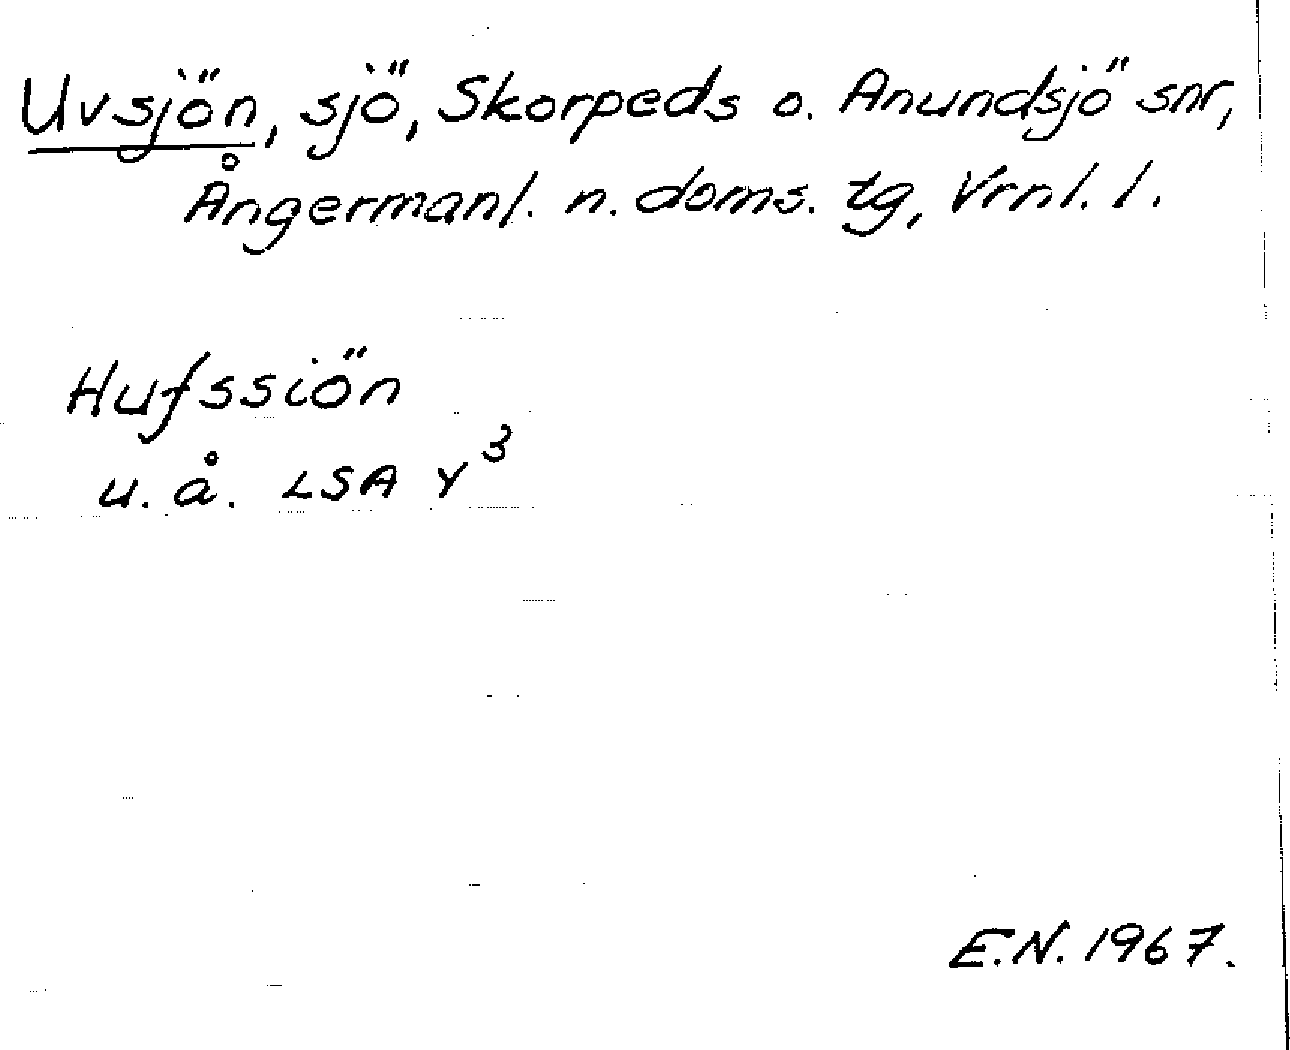 Uvsjön, sjö, Skorpeds o. Anundsjö snr,
Ångermanl. n. doms. tg, Vrnl. l.
Hufssiön
u. å. LSA Y³
E.N. 1967.